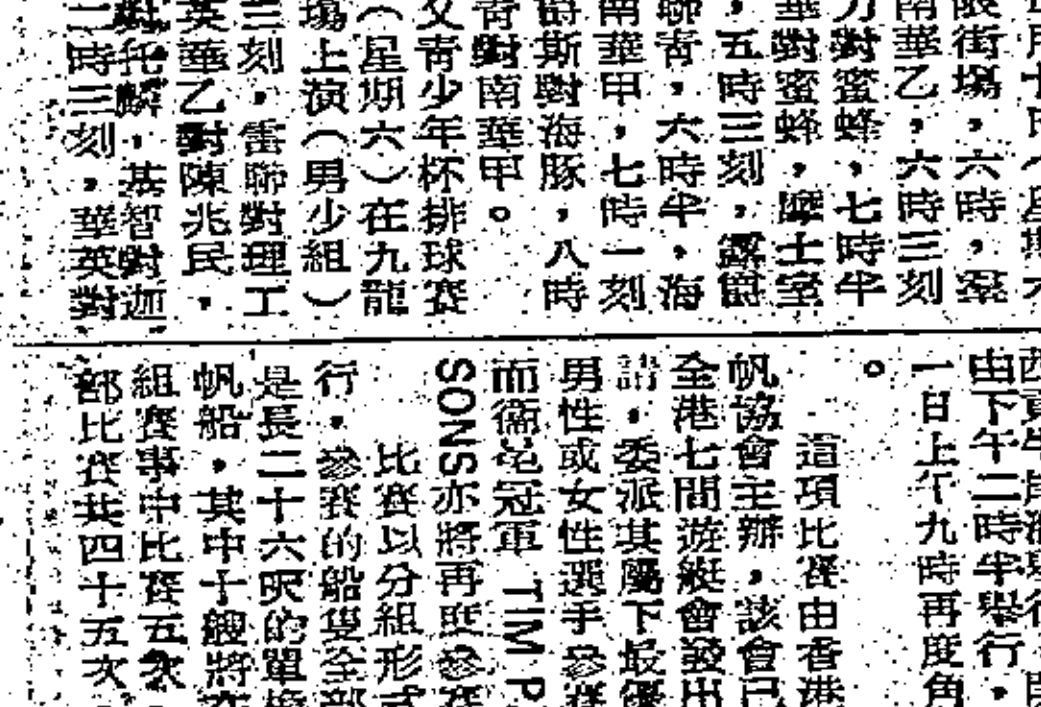 限街場，六時，羣
南華乙，六時三刻
力對蜜蜂，七時半
華對蜜蜂，摩士室
，五時三刻，露爵
聯青，六時半，海
南華甲，七時一刻
爵斯對海豚，八時
青對南華甲。
女青少年杯排球賽
（星期六）在九龍
塲上演（男少組）
三刻，雷聯對理工
英華乙對陳兆民，
對托麟，基智對迦
二時三刻，華英對
由下午二時半舉行，
一日上午九時再度角
。
這項比賽由香港
帆協會主辦，該會已
全港七間游艇會發出
請，委派其屬下最優
男性或女性選手參賽
而衞冕冠軍 TIM P
SONS亦將再度參賽
比賽以分組形式
行，參賽的船隻全部
是長二十六呎的單桅
帆船，其中十艘將在
組賽事中比賽五次，
部比賽共四十五次